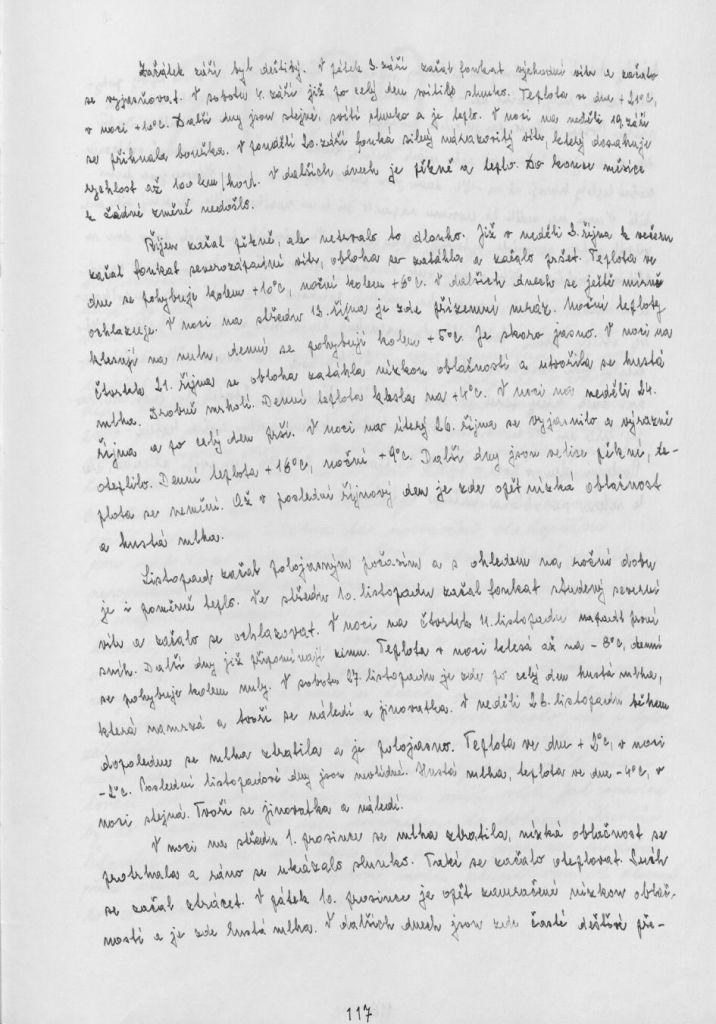 Začátek září byl deštivý. V pátek 3. září začal foukat východní vítr a začalo
se vyjasňovat. V sobotu 4. září již po celý den svítilo slunko. Teplota ve dne +21°C,
v noci +10°C. Další dny jsou stejné, svítí slunko a je teplo. V noci na neděli 19. září
se přihnala bouřka. V pondělí 20. září fouká silný nárazovitý vítr, který dosahuje
rychlost až 100 km/hod. V dalších dnech je pěkně a teplo. Do konce měsíce
k žádné změně nedošlo.
Říjen začal pěkně, ale netrvalo to dlouho. Již v neděli 3. října k večeru
začal foukat severozápadní vítr, obloha se zatáhla a začalo pršet. Teplota ve
dne se pohybuje kolem +10°C, noční kolem +5°C. V dalších dnech se ještě mírně
ochlazuje. V noci na středu 13. října je zde přízemní mráz. Noční teploty
klesají na nulu, denní se pohybují kolem +5°C. Je skoro jasno. V noci na
čtvrtek 21. října se obloha zatáhla nízkou oblačností a utvořila se hustá
mlha. Drobně mrholí. Denní teplota klesla na +4°C. V noci na neděli 24.
října a po celý den prší. V noci na úterý 26. října se vyjasnilo a výrazně
oteplilo. Denní teplota +18°C, noční +9°C. Další dny jsou velice pěkné, te-
plota se nemění. Až v poslední říjnový den je zde opět nízká oblačnost
a hustá mlha.
Listopad začal polojasným počasím a s ohledem na roční dobu
je i poměrně teplo. Ve středu 10. listopadu začal foukat studený severní
vítr a začalo se ochlazovat. V noci na čtvrtek 11. listopadu napadl první
sníh. Další dny již připomínají zimu. Teplota v noci klesá až na -8°C, denní
se pohybuje kolem nuly. V sobotu 27. listopadu je zde po celý den hustá mlha,
která namrzá a tvoří se náledí a jinovatka. V neděli 28. listopadu během
dopoledne se mlha ztratila a je polojasno. Teplota ve dne +2°C, v noci
-2°C. Poslední listopadové dny jsou nevlídné. Hustá mlha, teplota ve dne -4°C, v
noci stejná. Tvoří se jinovatka a náledí.
V noci na středu 1. prosince se mlha ztratila, nízká oblačnost se
protrhala a ráno se ukázalo slunko. Také se začalo oteplovat. Sníh
se začal ztrácet. V pátek 10. prosince je opět zamračené nízkou oblač-
ností a je zde hustá mlha. V dalších dnech jsou zde časté dešťové pře-
117